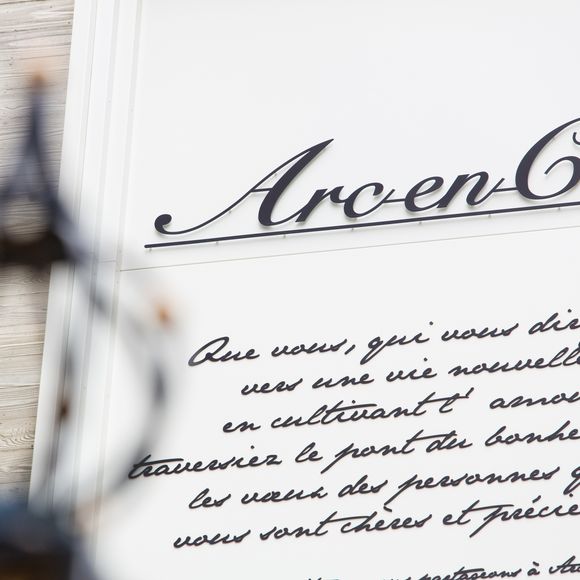 Arc-en-C
Que vous, qui vous dir
vers une vie nouvelle
en cultivant l' amou
traversiez le pont du bonhe
les vœux des personnes q
vous sont chères et précie
partageons à Ar